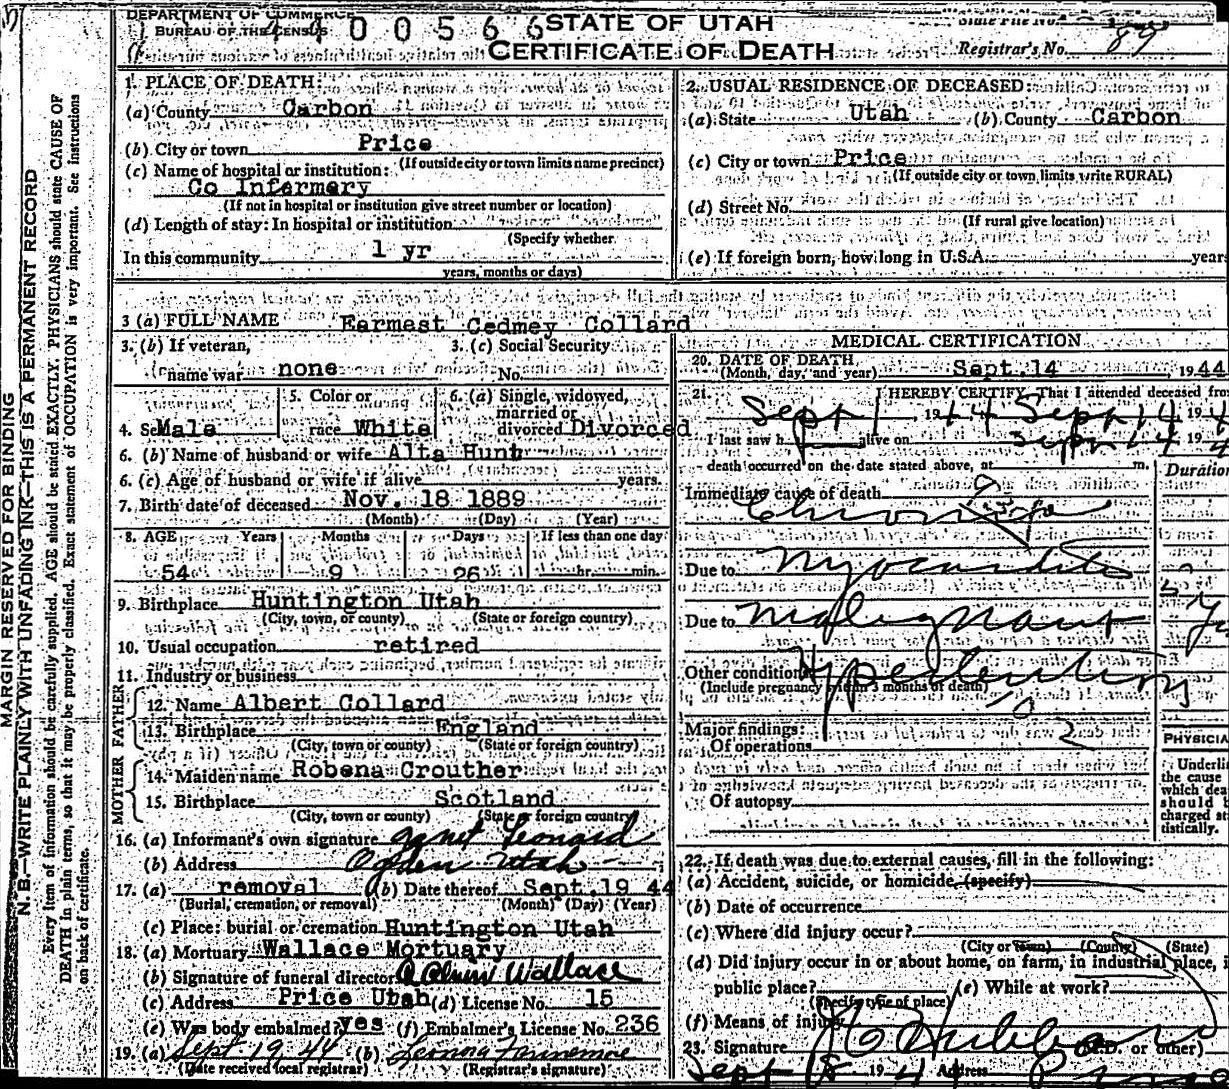 DEPARTMENT OF COMMERCE
BUREAU OF THE CENSUS
00566
STATE OF UTAH
CERTIFICATE OF DEATH
State File No.
Registrar's No. 89
MARGIN RESERVED FOR BINDING
N. B.—WRITE PLAINLY WITH UNFADING INK—THIS IS A PERMANENT RECORD
Every item of information should be carefully supplied. AGE should be stated EXACTLY. PHYSICIANS should state CAUSE OF
DEATH in plain terms, so that it may be properly classified. Exact statement of OCCUPATION is very important. See instructions
on back of certificate.
1. PLACE OF DEATH:
(a) County Carbon
(b) City or town Price
(If outside city or town limits name precinct)
(c) Name of hospital or institution:
Co Infermery
(If not in hospital or institution give street number or location)
(d) Length of stay: In hospital or institution
(Specify whether
In this community 1 yr
years, months or days)
2. USUAL RESIDENCE OF DECEASED:
(a) State Utah (b) County Carbon
(c) City or town Price
(If outside city or town limits write RURAL)
(d) Street No.
(If rural give location)
(e) If foreign born, how long in U.S.A. years
3 (a) FULL NAME Earmest Cedmey Collard
3. (b) If veteran, 3. (c) Social Security
name war none No.
5. Color or 6. (a) Single, widowed,
married or
4. Sex Male race White divorced Divorced
6. (b) Name of husband or wife Alta Hunt
6. (c) Age of husband or wife if alive years.
7. Birth date of deceased Nov. 18 1889
(Month) (Day) (Year)
8. AGE Years Months Days If less than one day
54 9 26 hr. min.
9. Birthplace Huntington Utah
(City, town, or county) (State or foreign country)
10. Usual occupation retired
11. Industry or business
FATHER
12. Name Albert Collard
13. Birthplace England
(City, town or county) (State or foreign country)
MOTHER
14. Maiden name Robena Crouther
15. Birthplace Scotland
(City, town or county) (State or foreign country
16. (a) Informant's own signature Janet Leonard
(b) Address Ogden Utah
17. (a) removal (b) Date thereof Sept. 19 44
(Burial, cremation, or removal) (Month) (Day) (Year)
(c) Place: burial or cremation Huntington Utah
18. (a) Mortuary Wallace Mortuary
(b) Signature of funeral director Wallace
(c) Address Price Utah (d) License No. 15
(e) Was body embalmed? yes (f) Embalmer's License No. 236
19. (a) Sept 19 44 (b) Leonora
(Date received local registrar) (Registrar's signature)
MEDICAL CERTIFICATION
20. DATE OF DEATH
(Month, day, and year) Sept. 14 1944
21. I HEREBY CERTIFY, That I attended deceased from
Sept 1 1944 Sept 14 19
I last saw h alive on Sept 14 19
death occurred on the date stated above, at m.
Duration
Immediate cause of death
Chronic
Due to Myocarditis
Due to Malignant
Other conditions Hypertension
(Include pregnancy within 3 months of death)
10 2
Major findings:
Of operations
Of autopsy
PHYSICIA
Underli
the cause
which dea
should
charged st
tistically.
22. If death was due to external causes, fill in the following:
(a) Accident, suicide, or homicide, (specify)
(b) Date of occurrence
(c) Where did injury occur?
(City or town) (County) (State)
(d) Did injury occur in or about home, on farm, in industrial place, i
public place? (e) While at work?
(Specify type of place)
(f) Means of injury
23. Signature Hubbard (M.D. or other)
Sept 18 1944 Address Price